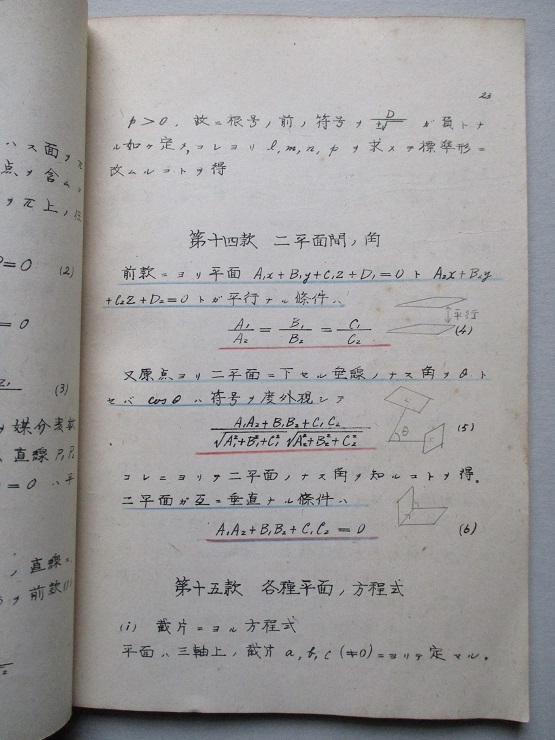 ハス面ヲ
点ヲ含ム
ヲπ上ノ
=0 (2)
=0
(3)
媒介変数
直線P₁P₂
=0 ハ平
, 直線ニ
ヲ前款(1)
23
p>0. 故ニ根号ノ前ノ符号ヲ D/±√ ガ負トナ
ル如ク定メ,コレヨリ l,m,n,p ヲ求メテ標準形ニ
改ムルコトヲ得
第十四款 二平面間ノ角
前款ニヨリ平面 A₁x+B₁y+C₁z+D₁=0 ト A₂x+B₂y
+C₂z+D₂=0 トガ平行ナル條件ハ
A₁/A₂ = B₁/B₂ = C₁/C₂ (4)
平行
又原点ヨリ二平面ニ下セル垂線ノナス角ヲθト
セバ cosθ ハ符号ヲ度外視シテ
A₁A₂+B₁B₂+C₁C₂ / √A₁²+B₁²+C₁² √A₂²+B₂²+C₂² (5)
θ
コレニヨリテ二平面ノナス角ヲ知ルコトヲ得。
二平面ガ互ニ垂直ナル條件ハ
A₁A₂+B₁B₂+C₁C₂=0 (6)
第十五款 各種平面ノ方程式
(i) 截片ニヨル方程式
平面ハ三軸上ノ截片 a,b,c (≠0)ニヨリテ定マル。